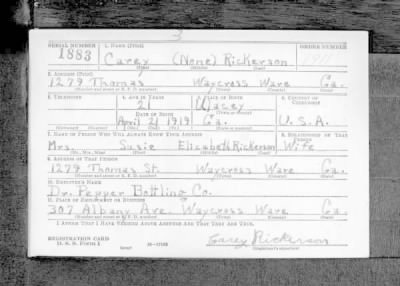 SERIAL NUMBER 1. NAME (Print) ORDER NUMBER
1883 Carey (None) Rickerson
(First) (Middle) (Last)
2. ADDRESS (Print)
1279 Thomas Waycross Ware Ga.
(Number and street or R. F. D. number) (Town) (County) (State)
3. TELEPHONE 4. AGE IN YEARS 5. PLACE OF BIRTH 6. COUNTRY OF CITIZENSHIP
21 Wacey
DATE OF BIRTH
April 21 1919 Ga. U.S.A.
(Exchange) (Number) (Mo.) (Day) (Yr.) (State or country)
7. NAME OF PERSON WHO WILL ALWAYS KNOW YOUR ADDRESS 8. RELATIONSHIP OF THAT PERSON
Mrs. Susie Elizabeth Rickerson Wife
(Mr., Mrs., Miss) (First) (Middle) (Last)
9. ADDRESS OF THAT PERSON
1279 Thomas St. Waycross Ware Ga.
(Number and street or R. F. D. number) (Town) (County) (State)
10. EMPLOYER'S NAME
Dr. Pepper Bottling Co.
11. PLACE OF EMPLOYMENT OR BUSINESS
307 Albany Ave. Waycross Ware Ga.
(Number and street or R. F. D. number) (Town) (County) (State)
I AFFIRM THAT I HAVE VERIFIED ABOVE ANSWERS AND THAT THEY ARE TRUE.
REGISTRATION CARD
D. S. S. Form 1 (over) 16-17105
Carey Rickerson
(Registrant's signature)